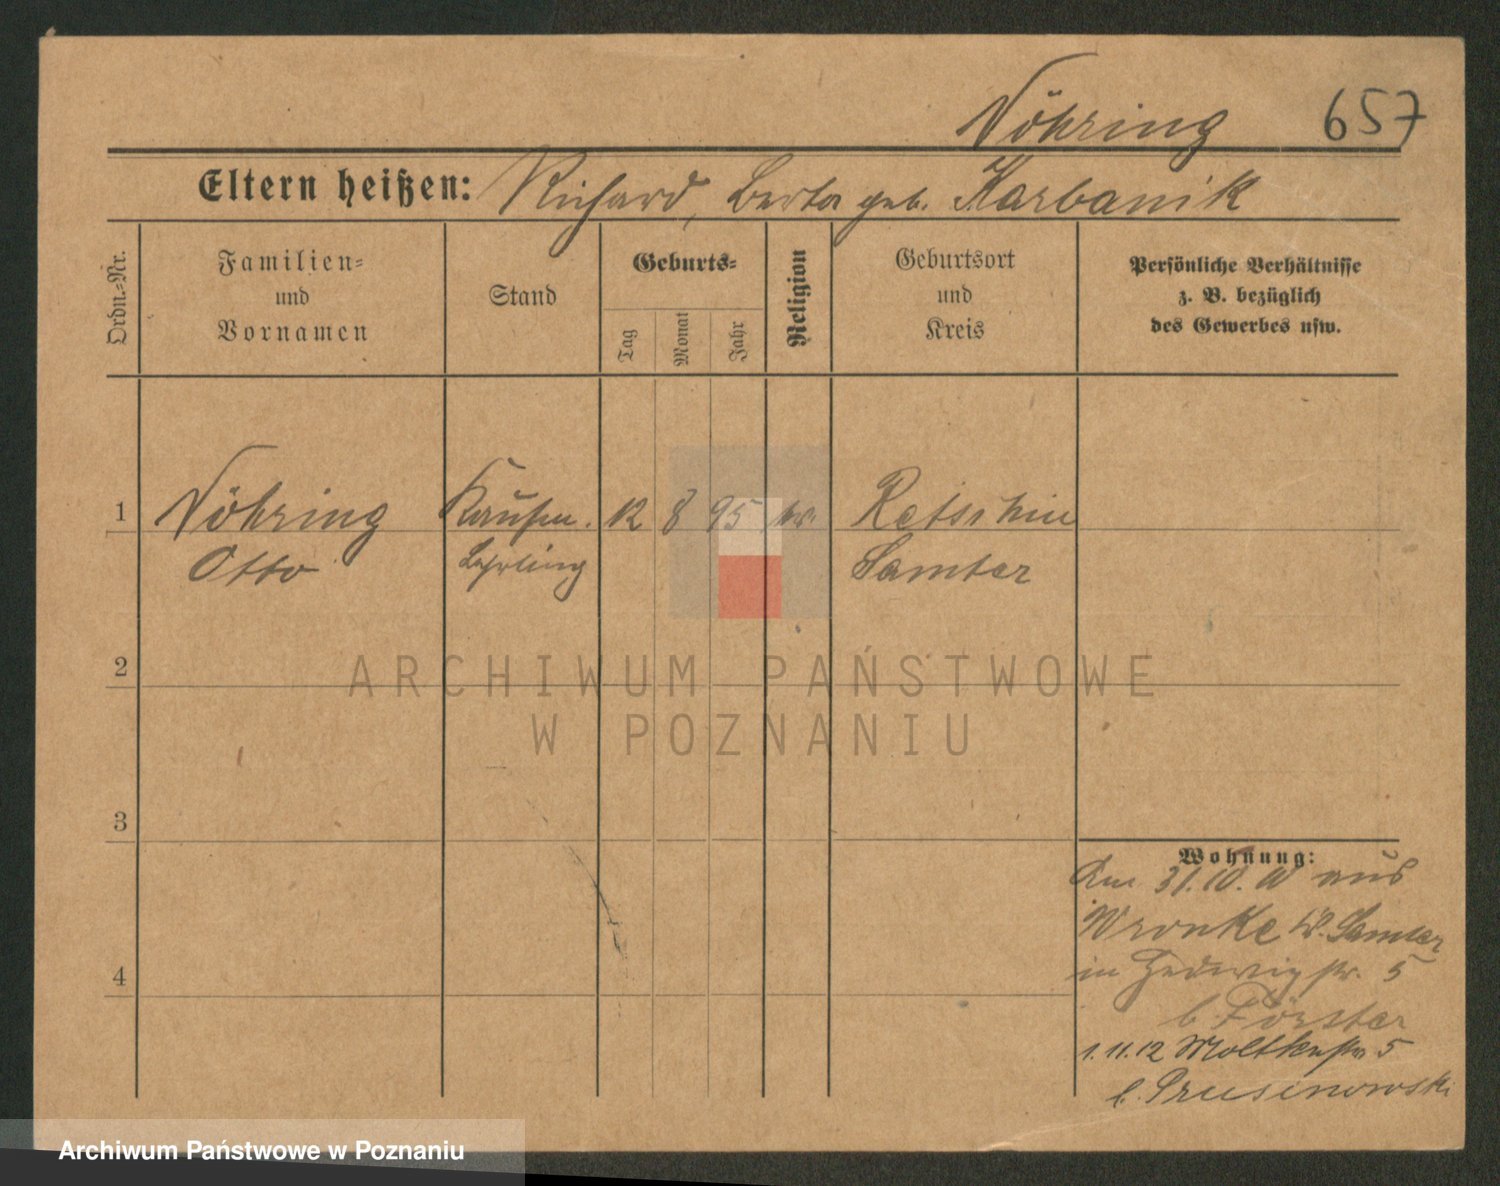 Nöhring 657
Eltern heißen: Richard, Berta geb. Karbanik
Ordn.-Nr.
Familien-
und
Vornamen
Stand
Geburts-
Tag
Monat
Jahr
Religion
Geburtsort
und
Kreis
Persönliche Verhältnisse
z. B. bezüglich
des Gewerbes usw.
1 Nöhring Kaufm. 12 8 95
Otto Lehrling Samter
2
3
4
Wohnung:
31.10. aus
Wronke Samter
in Hedwigstr. 5
b. Förster
1.11.12 Moltkestr 5
b. Prusinowski
ARCHIWUM PAŃSTWOWE
W POZNANIU
Archiwum Państwowe w Poznaniu